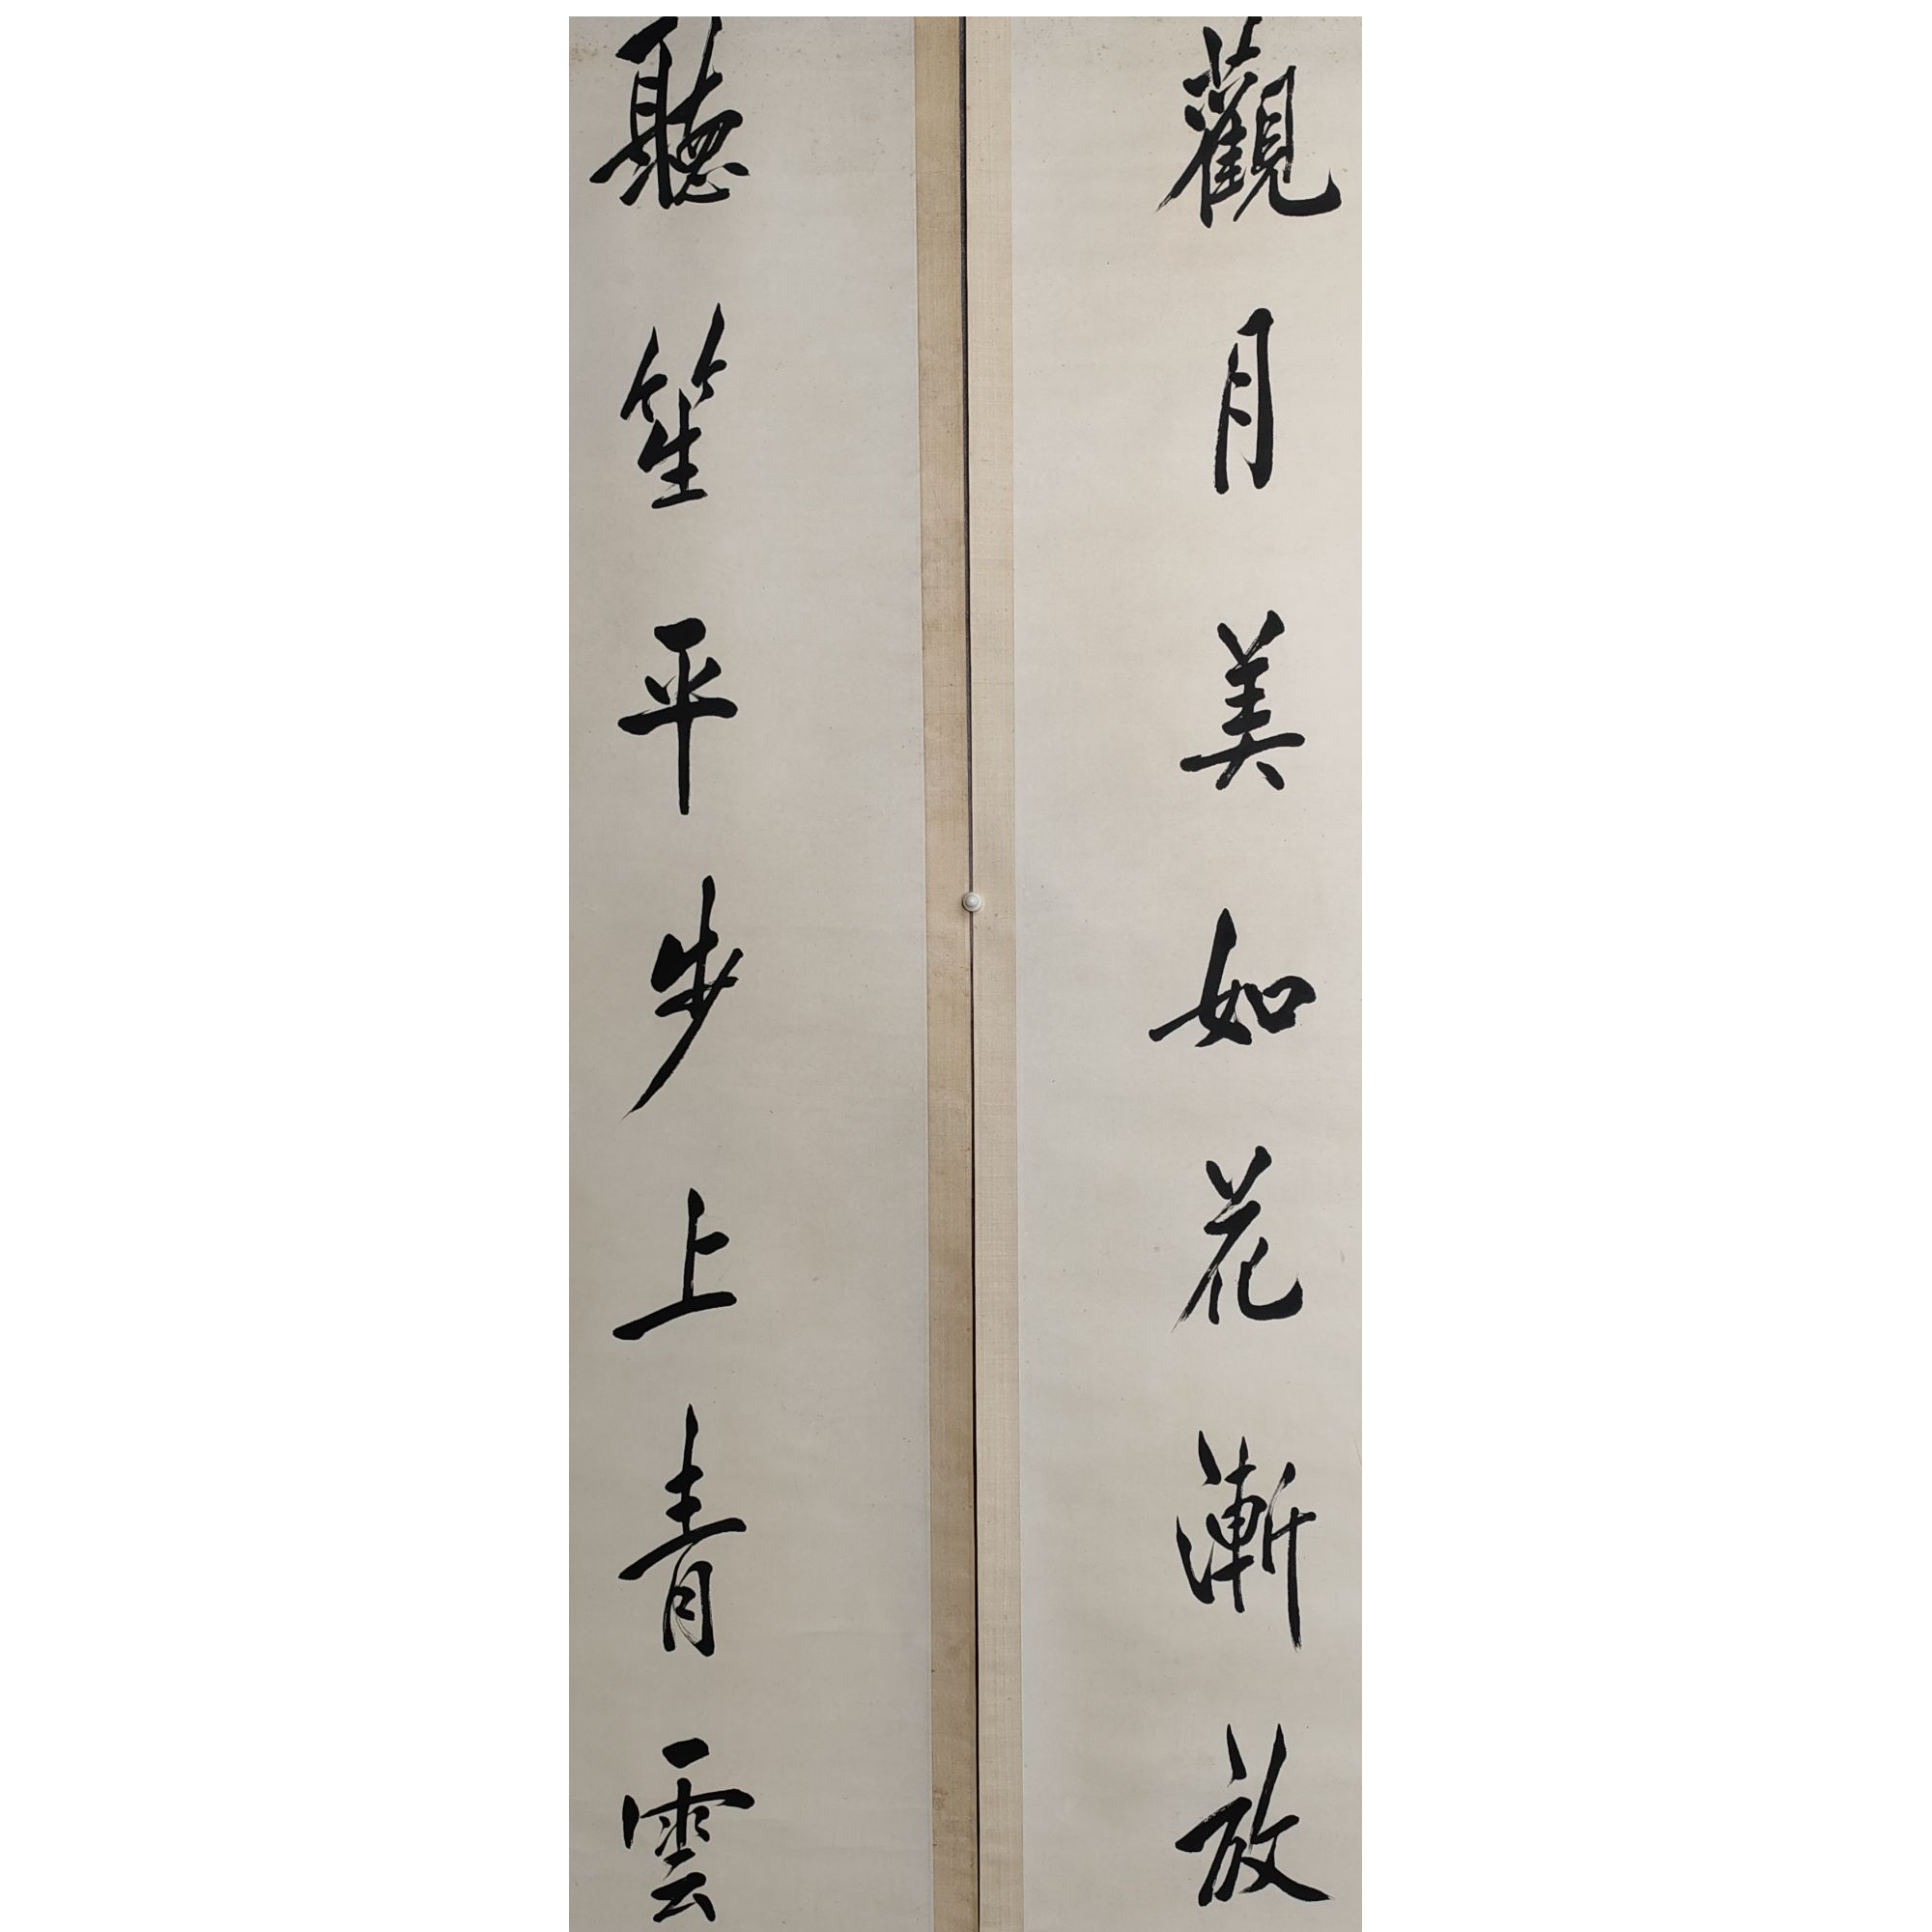 觀月美如花漸放
聽笙平步上青雲